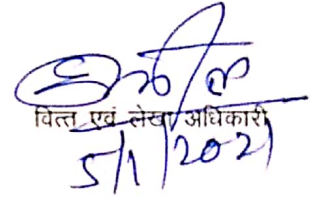 वित्त एवं लेखा अधिकारी
5/1/2021